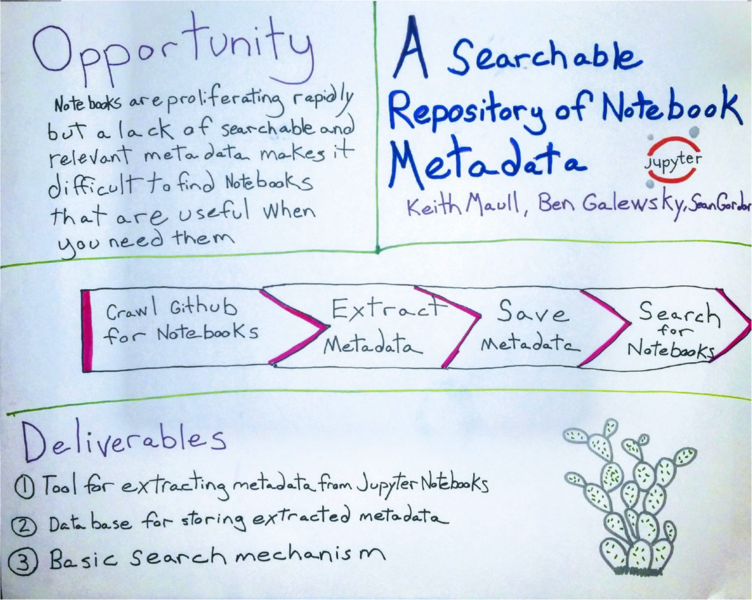 Opportunity
Notebooks are proliferating rapidly
but a lack of searchable and
relevant metadata makes it
difficult to find Notebooks
that are useful when
you need them
A Searchable
Repository of Notebook
Metadata
Jupyter
Keith Maull, Ben Galewsky, Sean Gordon
Crawl Github
for Notebooks
Extract
Metadata
Save
Metadata
Search
for
Notebooks
Deliverables
① Tool for extracting metadata from Jupyter Notebooks
② Database for storing extracted metadata
③ Basic search mechanism